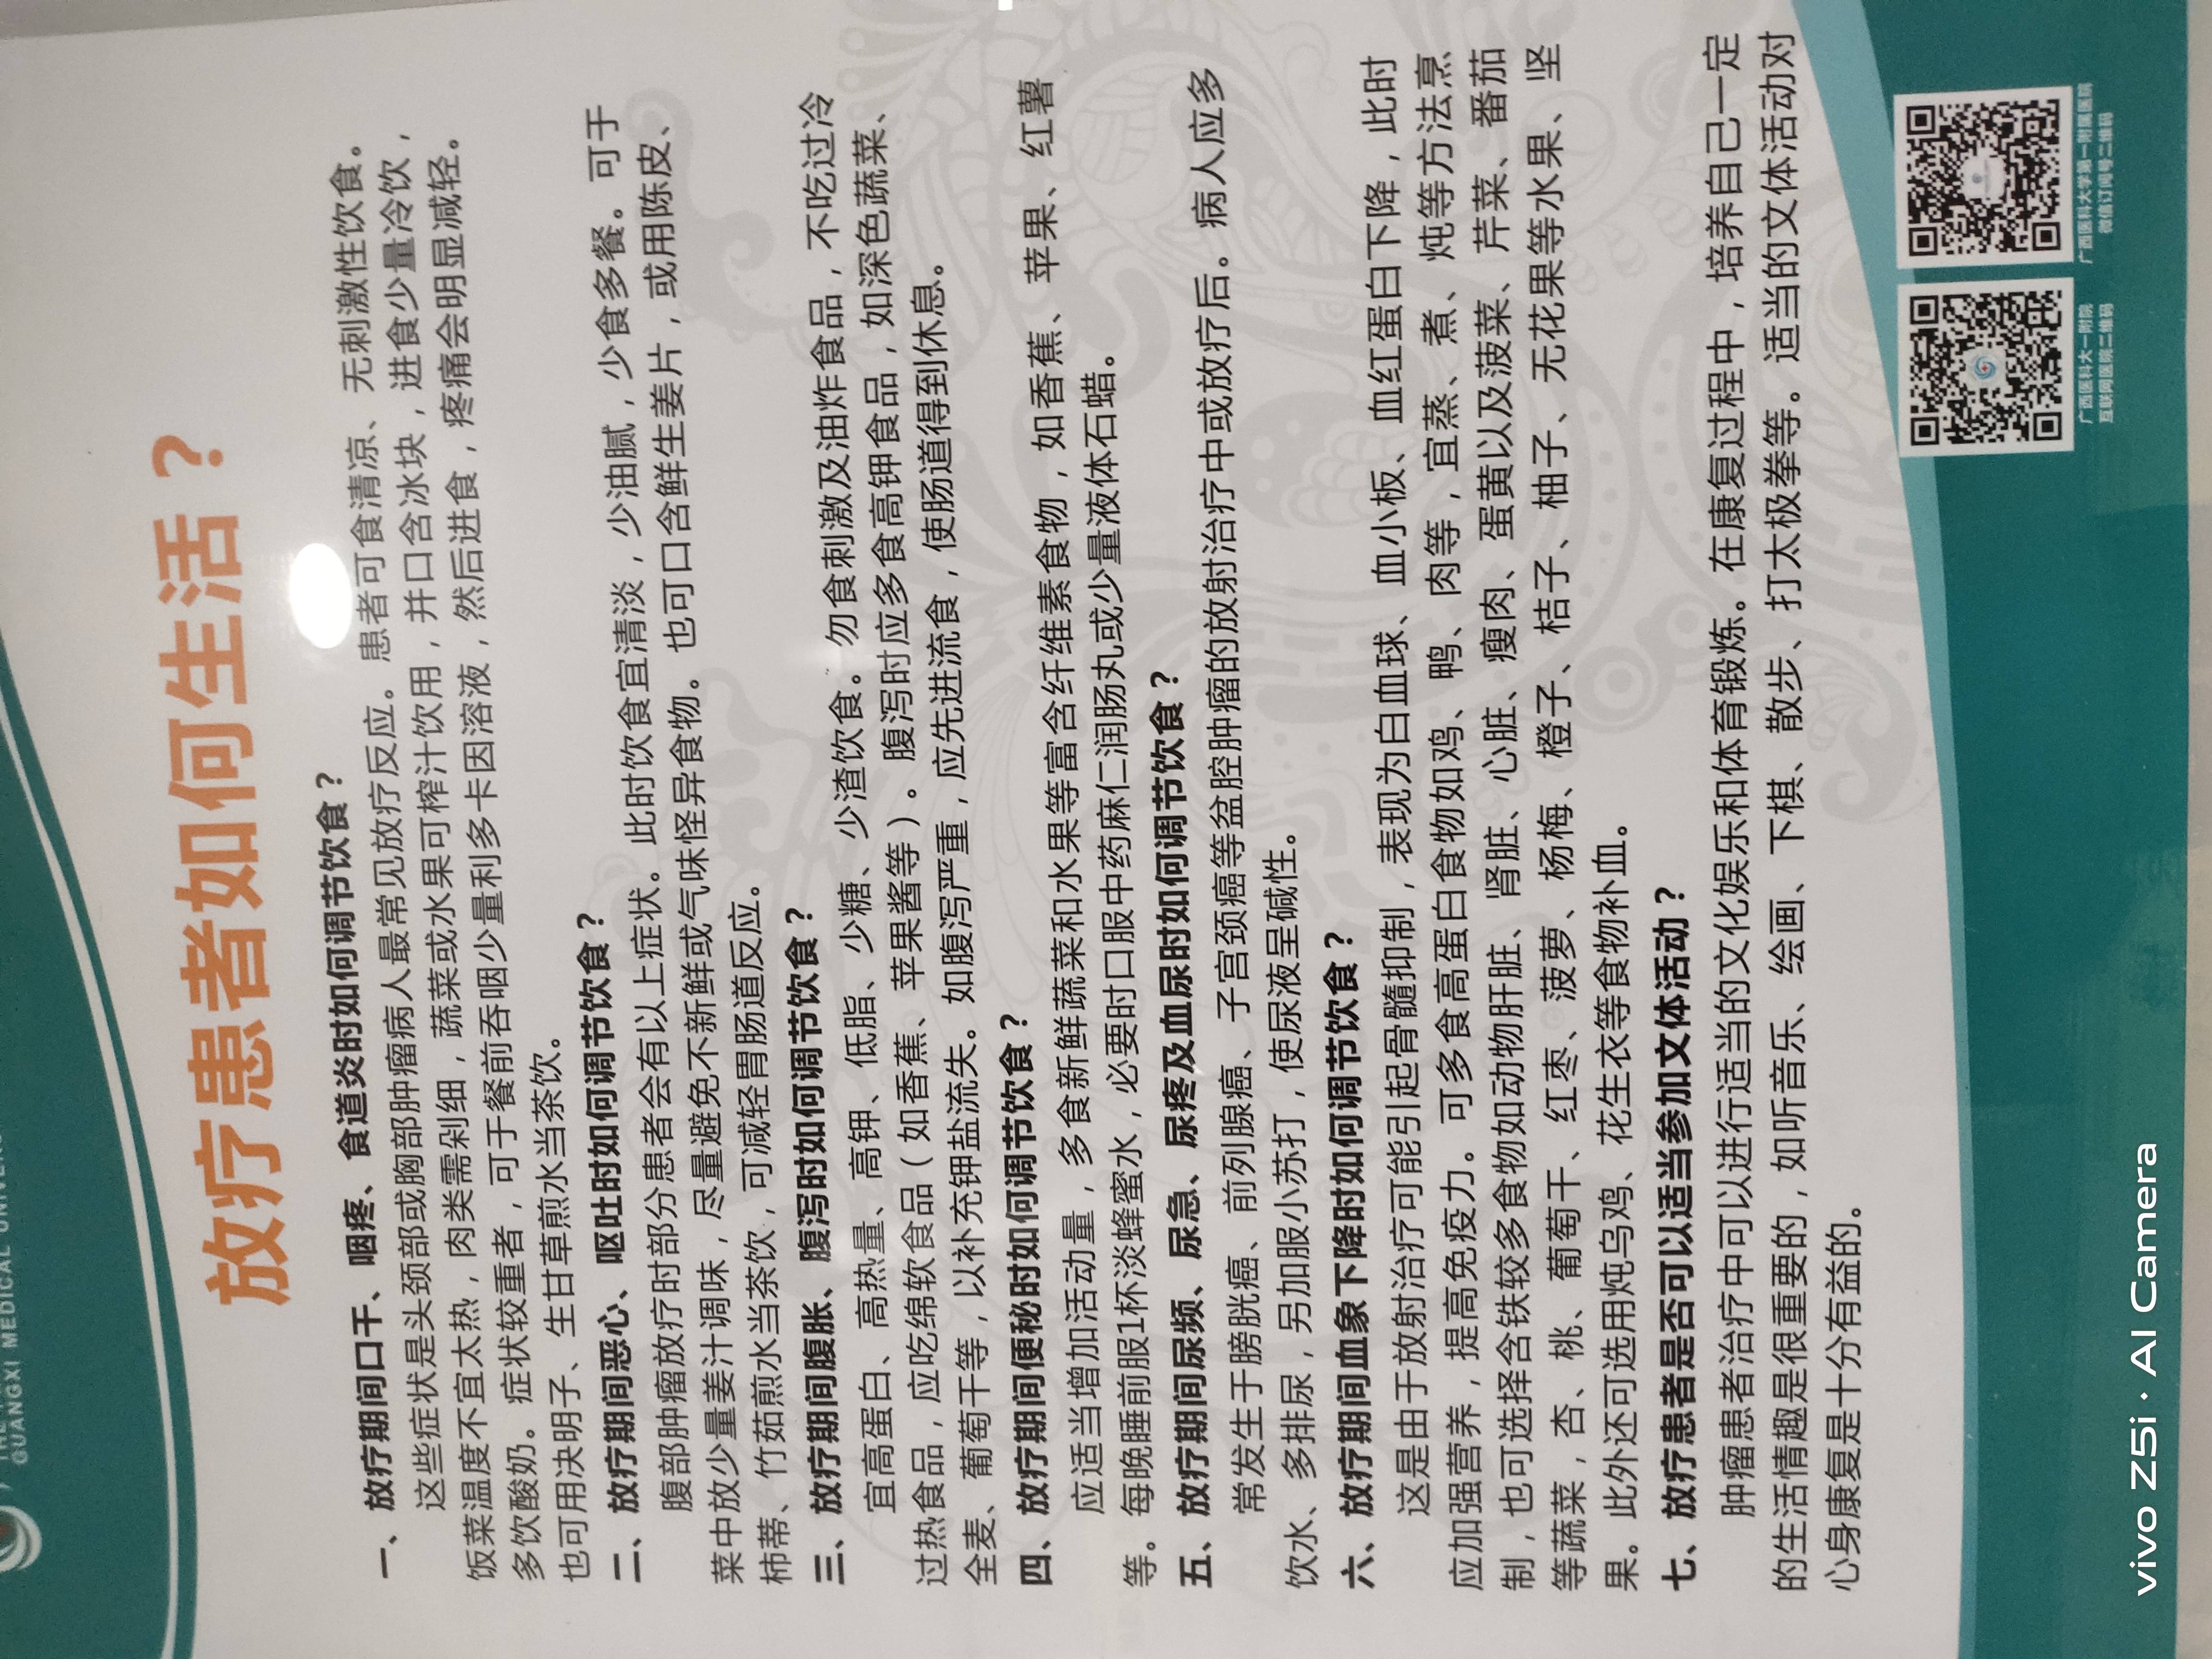 GUANGXI MEDICAL UNIVER
放疗患者如何生活？
一、放疗期间口干、咽疼、食道炎时如何调节饮食？
这些症状是头颈部或胸部肿瘤病人最常见放疗反应。患者可食清凉、无刺激性饮食。
饭菜温度不宜太热，肉类需剁细，蔬菜或水果可榨汁饮用，并口含冰块，进食少量冷饮，
多饮酸奶。症状较重者，可于餐前吞咽少量利多卡因溶液，然后进食，疼痛会明显减轻。
也可用决明子、生甘草煎水当茶饮。
二、放疗期间恶心、呕吐时如何调节饮食？
腹部肿瘤放疗时部分患者会有以上症状。此时饮食宜清淡，少油腻，少食多餐。可于
菜中放少量姜汁调味，尽量避免不新鲜或气味怪异食物。也可口含鲜生姜片，或用陈皮、
柿蒂、竹茹煎水当茶饮，可减轻胃肠道反应。
三、放疗期间腹胀、腹泻时如何调节饮食？
宜高蛋白、高热量、高钾、低脂、少糖、少渣饮食。勿食刺激及油炸食品，不吃过冷
过热食品，应吃绵软食品（如香蕉、苹果酱等）。腹泻时应多食高钾食品，如深色蔬菜、
全麦、葡萄干等，以补充钾盐流失。如腹泻严重，应先进流食，使肠道得到休息。
四、放疗期间便秘时如何调节饮食？
应适当增加活动量，多食新鲜蔬菜和水果等富含纤维素食物，如香蕉、苹果、红薯
等。每晚睡前服1杯淡蜂蜜水，必要时口服中药麻仁润肠丸或少量液体石蜡。
五、放疗期间尿频、尿急、尿疼及血尿时如何调节饮食？
常发生于膀胱癌、前列腺癌、子宫颈癌等盆腔肿瘤的放射治疗中或放疗后。病人应多
饮水、多排尿，另加服小苏打，使尿液呈碱性。
六、放疗期间血象下降时如何调节饮食？
这是由于放射治疗可能引起骨髓抑制，表现为白血球、血小板、血红蛋白下降，此时
应加强营养，提高免疫力。可多食高蛋白食物如鸡、鸭、肉等，宜蒸、煮、炖等方法烹
制，也可选择含铁较多食物如动物肝脏、肾脏、心脏、瘦肉、蛋黄以及菠菜、芹菜、番茄
等蔬菜，杏、桃、葡萄干、红枣、菠萝、杨梅、橙子、桔子、柚子、无花果等水果、坚
果。此外还可选用炖乌鸡、花生衣等食物补血。
七、放疗患者是否可以适当参加文体活动？
肿瘤患者治疗中可以进行适当的文化娱乐和体育锻炼。在康复过程中，培养自己一定
的生活情趣是很重要的，如听音乐、绘画、下棋、散步、打太极拳等。适当的文体活动对
心身康复是十分有益的。
广西医科大一附院
互联网医院二维码
广西医科大学第一附属医院
微信订阅号二维码
vivo Z5i · AI Camera